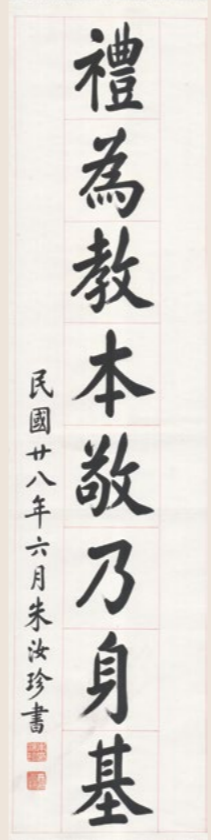 禮為教本敬乃身基
民國廿八年六月朱汝珍書